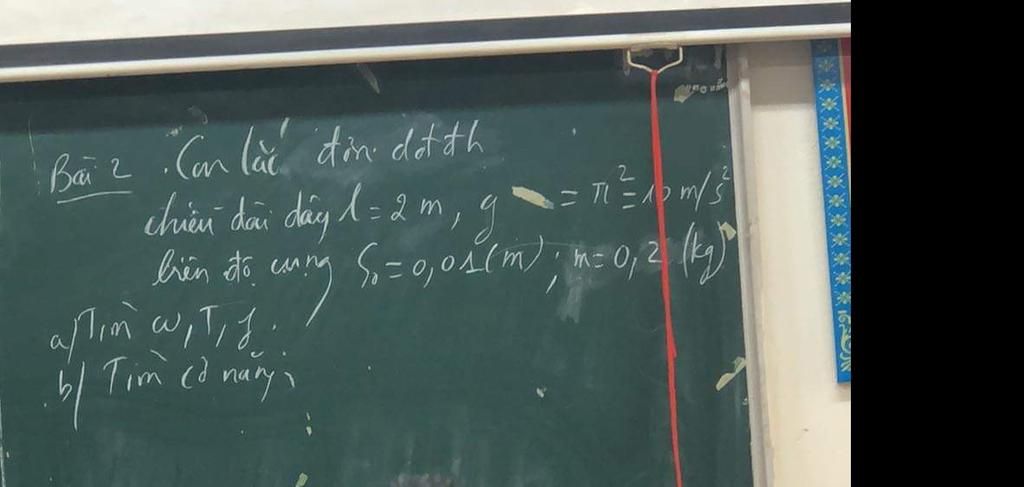 Bài 2 . Con lắc đơn dđđh
chiều dài dây l = 2 m, g = π² = 10 m/s²
biên độ cung S₀ = 0,01 (m) ; m = 0,2 (kg)
a/ Tìm ω, T, f.
b/ Tìm cơ năng;